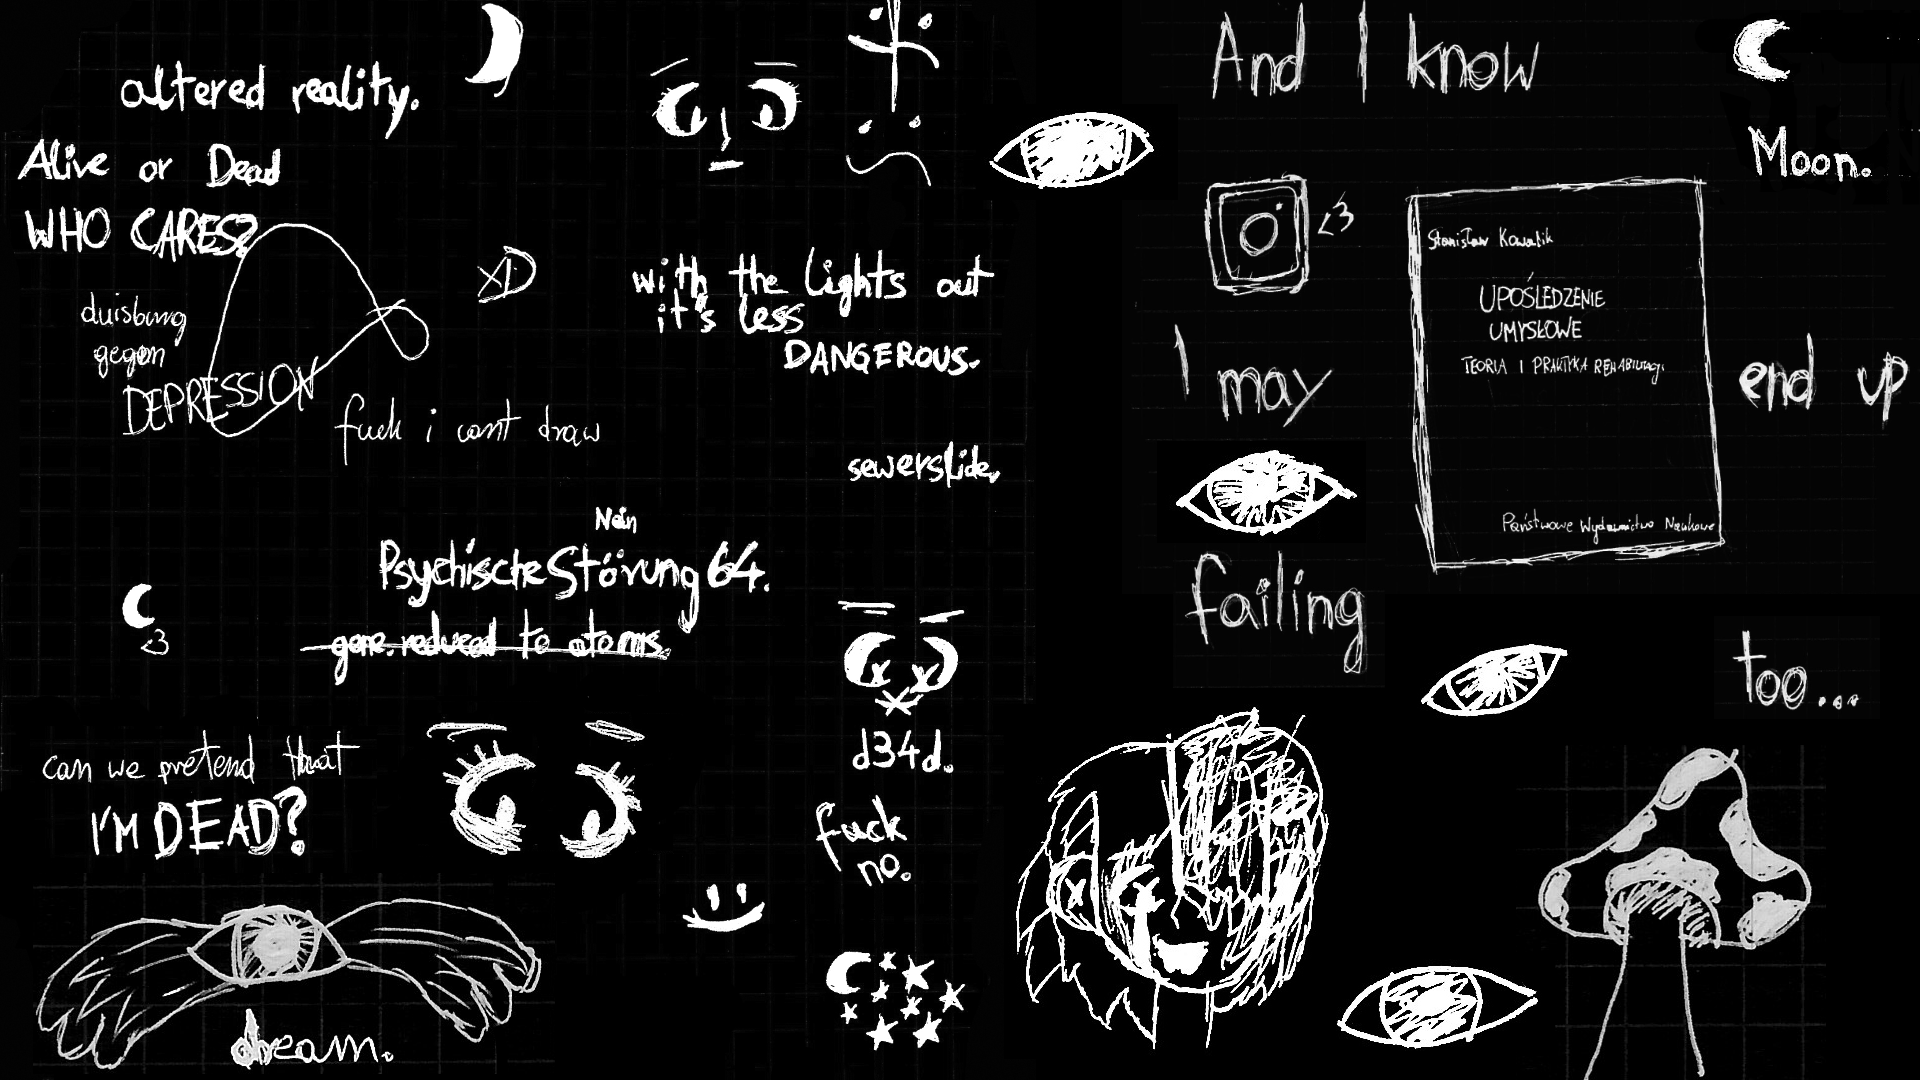 altered reality.
Alive or Dead
WHO CARES?
duisburg
gegen
DEPRESSION
fuck i cant draw
XD
with the lights out
it's less
DANGEROUS.
sewerslide.
Nein
Psychische Störung 64.
gone. reduced to atoms.
<3
can we pretend that
I'M DEAD?
dream.
d34d.
fuck
no.
And I know
Moon.
<3
Stanisław Kowalik
UPOŚLEDZENIE
UMYSŁOWE
TEORIA I PRAKTYKA REHABILITACJI
Państwowe Wydawnictwo Naukowe
I may
end up
failing
too...